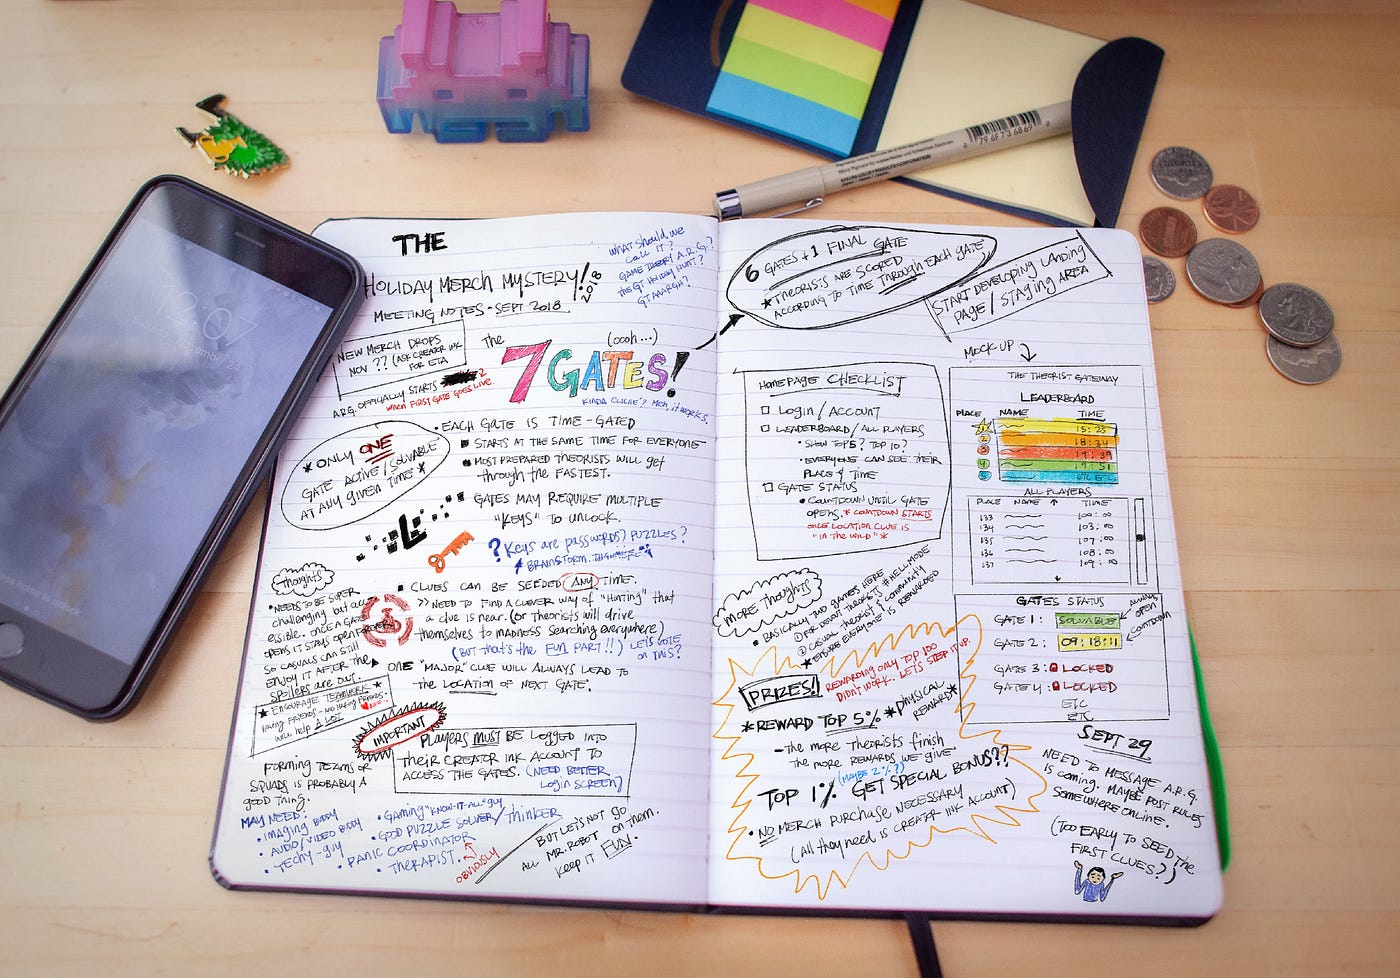 THE
HOLIDAY MERCH MYSTERY! 2018
MEETING NOTES · SEPT 2018
WHAT SHOULD WE
CALL IT?
GAME THEORY A.R.G.?
THE GT HOLIDAY HUNT?
GTAAARGH?
NEW MERCH DROPS
NOV ?? (ASK CREATOR INK
FOR ETA
A.R.G. OFFICIALLY STARTS
WHEN FIRST GATE GOES LIVE.
The
(oooh...)
7 GATES!
KINDA CLICHE? Meh, it works.
• EACH GATE IS TIME-GATED
STARTS AT THE SAME TIME FOR EVERYONE
MOST PREPARED THEORISTS WILL get
through the FASTEST.
* ONLY ONE
GATE ACTIVE/SOLVABLE
AT ANY GIVEN TIME *
GATES MAY REQUIRE MULTIPLE
"KEYS" TO UNLOCK.
? Keys are passwords? PUZZLES?
BRAINSTORM.
Thoughts
• NEEDS TO BE SUPER
challenging but acc
essible. ONCE A GATE
OPENS IT STAYS OPEN FOREVER
SO CASUALS CAN STILL
ENJOY IT AFTER THE
SPOILERS ARE OUT.
• CLUES CAN BE SEEDED ANY TIME.
>> NEED TO FIND A CLEVER WAY OF "HINTING" THAT
a clue is near. (or Theorists will drive
themselves to madness searching everywhere)
(BUT that's the FUN PART!!) LET'S VOTE
ON THIS?
ONE "MAJOR" CLUE WILL ALWAYS LEAD TO
the LOCATION OF NEXT GATE.
* ENCOURAGE TEAMWORK *
Having FRIENDS
will help A LOT
IMPORTANT
PLAYERS MUST BE LOGGED INTO
THEIR CREATOR INK ACCOUNT TO
ACCESS THE GATES. (NEED BETTER
LOGIN SCREEN)
FORMING TEAMS OR
SQUADS IS PROBABLY A
GOOD THING.
MAY NEED:
• IMAGING BUDDY
• AUDIO/VIDEO BUDDY
• TECHY-guy
• GAMING "KNOW-IT-ALL" guy
• GOOD PUZZLE SOLVER/THINKER
• PANIC COORDINATOR
• THERAPIST.
OBVIOUSLY
BUT LET'S NOT GO
ALL MR. ROBOT ON THEM.
KEEP IT FUN.
6 GATES + 1 FINAL GATE
* THEORISTS ARE SCORED
ACCORDING TO TIME THROUGH EACH GATE
START DEVELOPING LANDING
PAGE/STAYING AREA
HOMEPAGE CHECKLIST
LOGIN/ACCOUNT
LEADERBOARD/ALL PLAYERS
• SHOW TOP 5? TOP 10?
• EVERYONE CAN SEE THEIR
PLACE & TIME
GATE STATUS
• COUNTDOWN UNTIL GATE
OPENS. * COUNTDOWN STARTS
ONCE LOCATION CLUE IS
"IN THE WILD" *
MOCK UP
THE THEORIST GATEWAY
LEADERBOARD
PLACE NAME TIME
1 15:25
2 18:34
3 19:39
4 19:51
5 ETC ETC
ALL PLAYERS
PLACE NAME TIME
133 100:00
134 103:00
135 107:00
136 108:00
137 109:00
GATES STATUS
GATE 1: SOLVABLE
ALWAYS OPEN
GATE 2: 09:18:11
COUNTDOWN
GATE 3: LOCKED
GATE 4: LOCKED
ETC
ETC
MORE THOUGHTS
• BASICALLY 2ND GAMES HERE
① FOR DEVOUT THEORISTS #HELLMODE
② CASUAL THEORIST/COMMUNITY
* ENSURE EVERYONE IS REWARDED
PRIZES!
REWARDING ONLY TOP 100
DIDN'T WORK. LET'S STEP IT UP.
* REWARD TOP 5% * PHYSICAL
REWARD *
- the more THEORISTS finish
the more REWARDS WE GIVE.
(MAYBE 2%?)
TOP 1% GET SPECIAL BONUS??
• NO MERCH PURCHASE NECESSARY
(All they need is CREATOR INK ACCOUNT)
SEPT 29
NEED TO MESSAGE A.R.G.
IS COMING. MAYBE POST RULES
SOMEWHERE ONLINE.
(TOO EARLY TO SEED THE
FIRST CLUES?)
SAKURA COLOR PRODUCTS CORPORATION
12:07